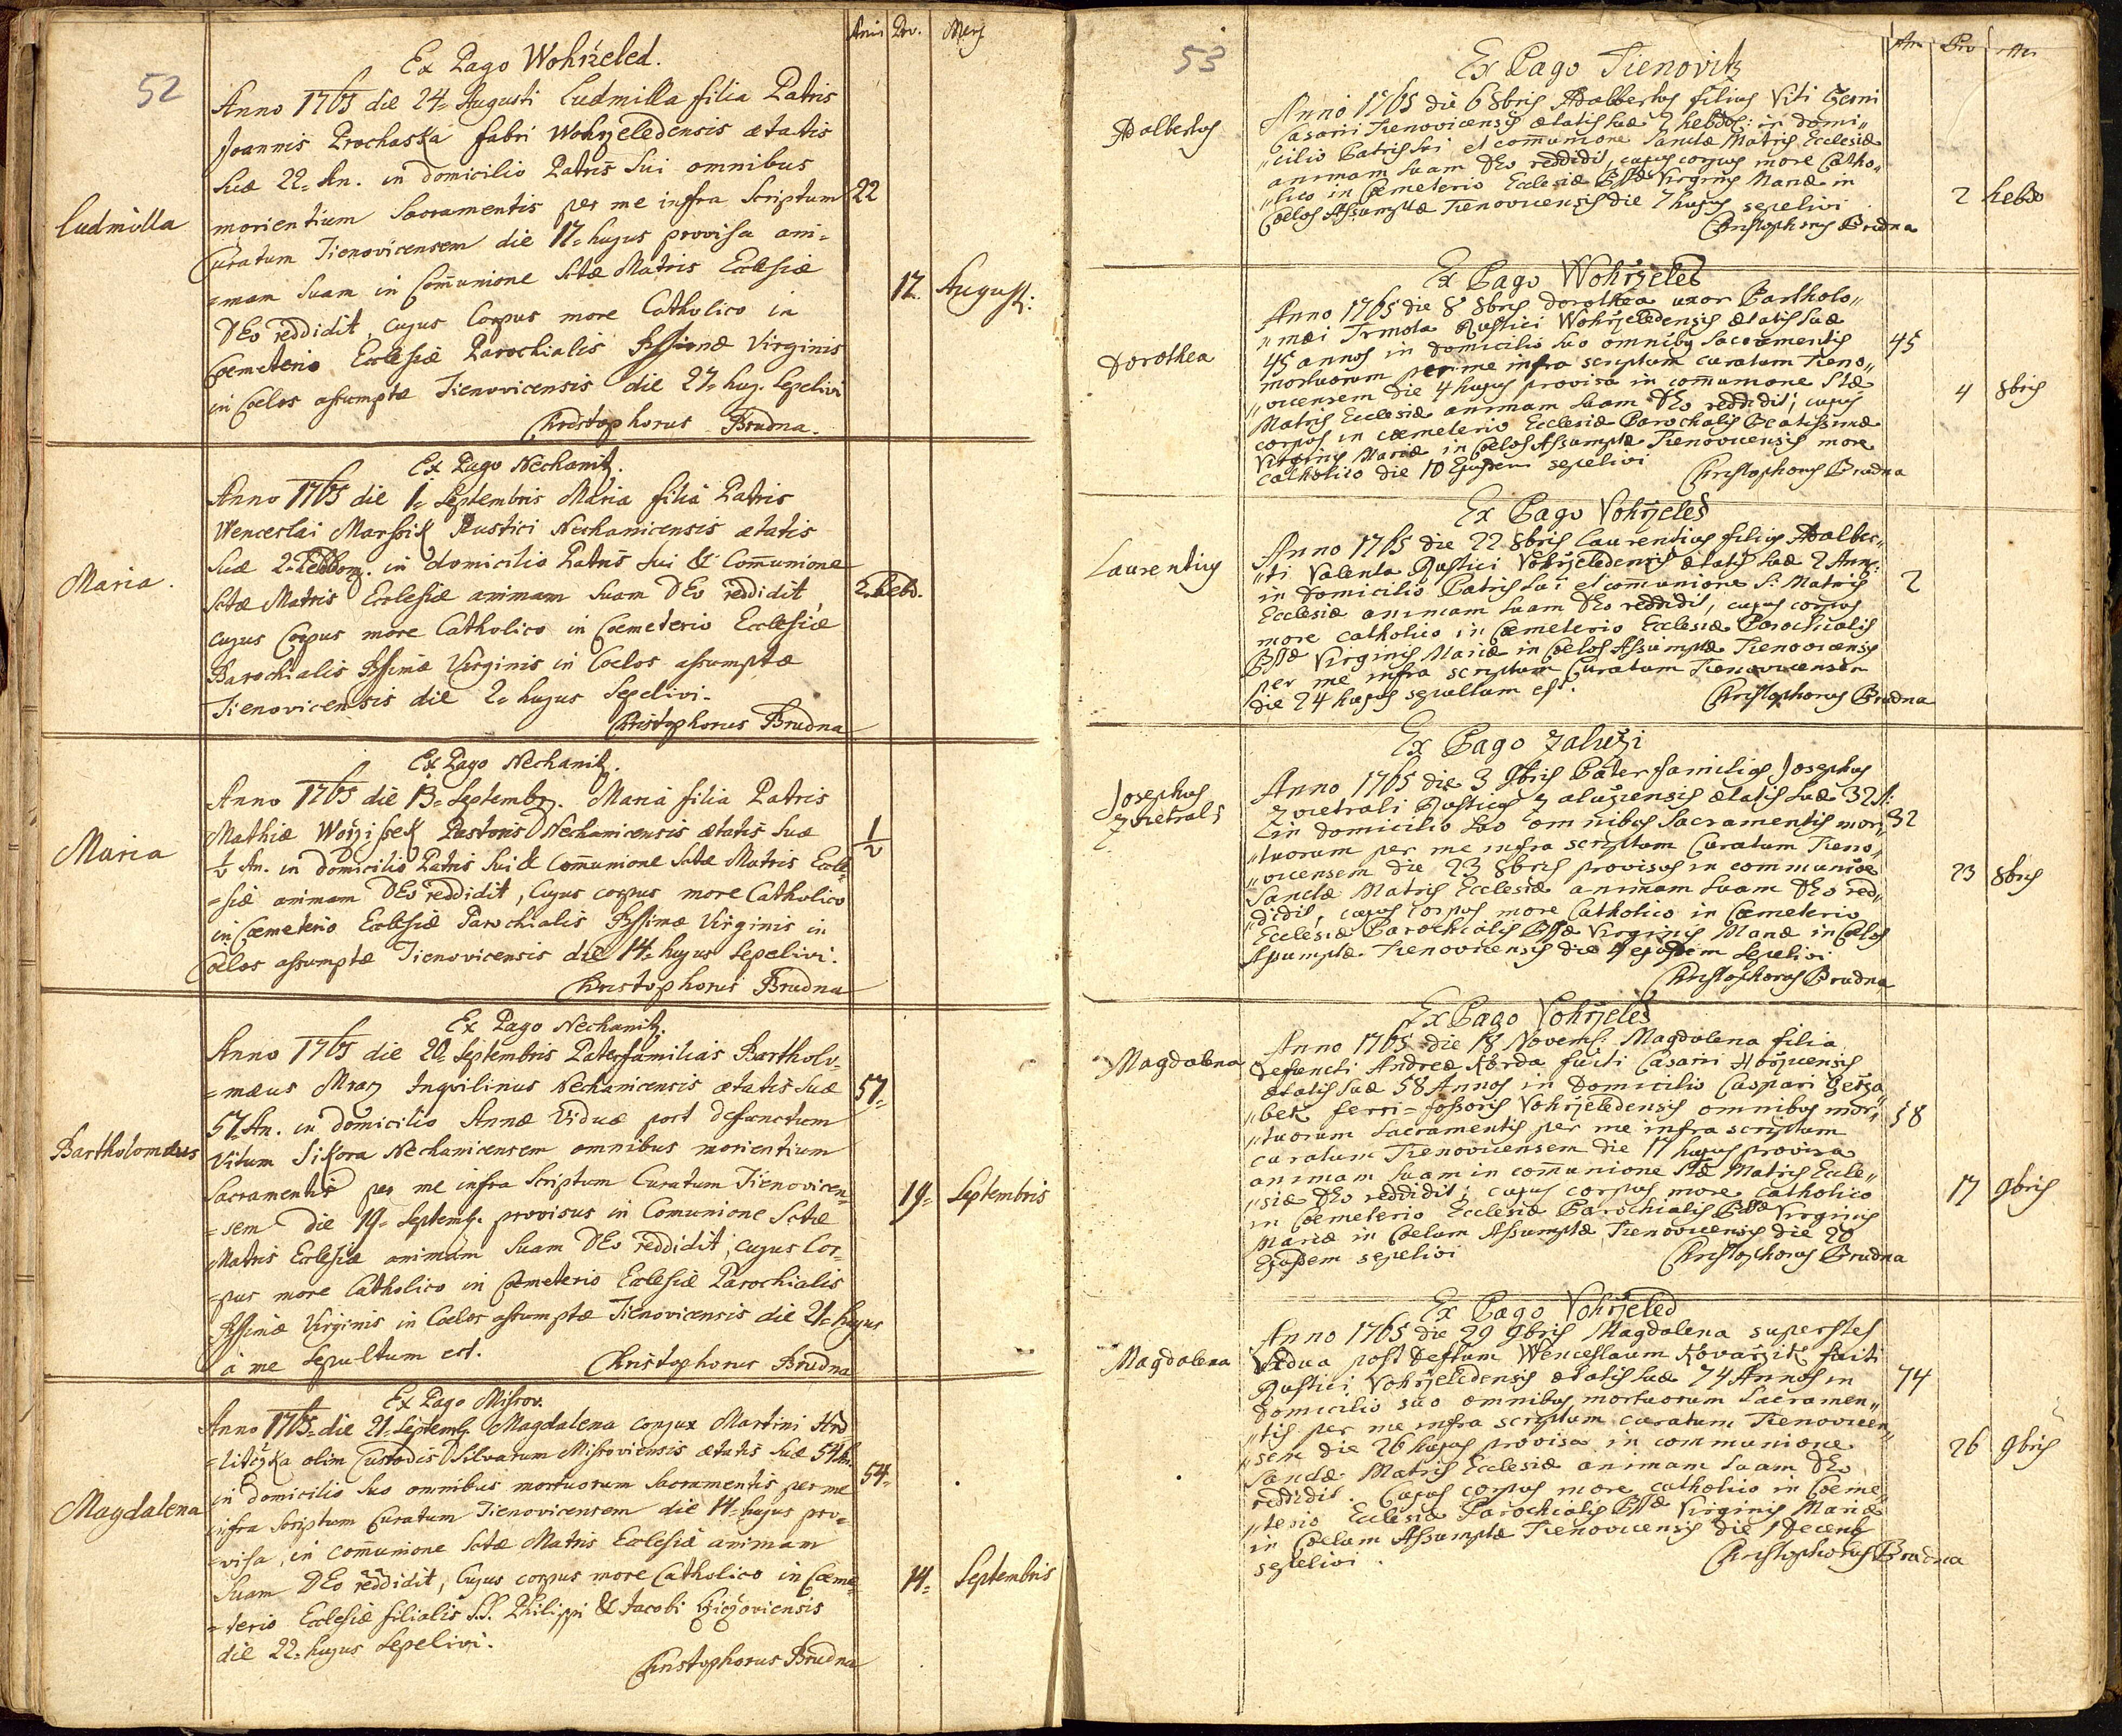 52
Anni Pro. Mens
Ex Pago Wohrželed.
Anno 1765 die 24. Augusti Ludmilla filia Patris
Joannis Prochaska fabri Wohrzeledensis ætatis
Suæ 22. An. in domicilio Patris Sui omnibus
Ludmilla
morientium Sacramentis per me infra Scriptum
22
Curatum Tienovicensem die 17. hujus provisa ani=
=mam Suam in Comunione Sctæ Matris Ecclesiæ
17. August:
DEo reddidit, cujus Corpus more Catholico in
Coemeterio Ecclesiæ Parochialis Bssimæ Virginis
in Coelos assumptæ Tienovicensis die 27. huj. Sepelivi
Christophorus Brudna.
Ex Pago Nechanitz.
Anno 1765 die 1. Septembris Maria filia Patris
Wenceslai Marssik Rustici Nechanicensis ætatis
Suæ 2. Hebdom. in domicilio Patris Sui & Comunione
Maria.
Sctæ Matris Ecclesiæ animam Suam DEo reddidit
2. Hebd.
cujus Corpus more Catholico in Coemeterio Ecclesiæ
Parochialis Bssimæ Virginis in Coelos assumptæ
Tienovicensis die 2. hujus Sepelivi.
Christophorus Brudna
Ex Pago Nechanitz.
Anno 1765 die 13. Septembr. Maria filia Patris
Mathiæ Woržissek Pastoris Nechanicensis ætatis Suæ
Maria
1/2 An. in domicilio Patris Sui & Comunione Sctæ Matris Eccle=
1/2
=siæ animam DEo reddidit, Cujus corpus more Catholico
in Coemeterio Ecclesiæ Parochialis Bssimæ Virginis in
Coelos assumptæ Tienovicensis die 14. hujus Sepelivi.
Christophorus Brudna
Ex Pago Nechanitz.
Anno 1765 die 20. Septembris Paterfamilias Bartholo=
=mæus Mraz Inquilinus Nechanicensis ætatis Suæ
57.
57. An. in domicilio Annæ Viduæ post defunctum
Bartholomæus
Vitum Sikora Nechanicensem omnibus morientium
Sacramentis per me infra Scriptum Curatum Tienovicen=
19. Septembris
=sem die 19. Septemb. provisus in Comunione Sctæ
Matris Ecclesiæ animam Suam DEo reddidit, cujus Cor=
=pus more Catholico in Coemeterio Ecclesiæ Parochialis
Bssimæ Virginis in Coelos assumptæ Tienovicensis die 21. hujus
à me Sepultum est.
Christophorus Brudna
Ex Pago Missov.
Anno 1765. die 21. Septemb. Magdalena conjux Martini Hrd=
=litczka olim Custodis Silvarum Missoviensis ætatis Suæ 54. An.
54.
in domicilio Suo omnibus mortuorum Sacramentis per me
Magdalena
infra Scriptum Curatum Tienovicensem die 14. hujus pro=
=visa, in comunione Sctæ Matris Ecclesiæ animam
Suam DEo reddidit, Cujus corpus more Catholico in Coeme=
14. Septembris
=terio Ecclesiæ filialis S.S. Philippi & Jacobi
die 22. hujus Sepelivi.
Christophorus Brudna
53
An Pro Men
Ex Pago Tienovitz
Anno 1765 die 6 8bris Adalbertus filius Viti Cžerni
Adalbertus
Casarii Tienovicensis ætatis suæ 2 hebdos: in domi"
"cilio Patris sui et communione sanctæ Matris Ecclesiæ
animam suam DEo reddidit, cujus corpus more Catho"
"lico in Cœmeterio Ecclesiæ BSSæ Virginis Mariæ in
2 hebdo
Coelos Assumptæ Tienovicensis die 7 hujus sepelivi
Christophorus Brudna
Ex Pago Wohrželed
Anno 1765 die 8 8bris Dorothea uxor Bartholo"
"mæi Trmota Rustici Wohrželedensis ætatis suæ
45
Dorothea
45 annos in domicilio suo omnibus Sacramentis
mortuorum per me infra scriptum curatum Tieno"
"vicensem die 4 hujus provisa in communione Stæ
4 8bris
Matris Ecclesiæ animam suam DEo reddidit; cujus
corpus in cœmeterio Ecclesiæ Parochialis Beatissimæ
Virginis Mariæ in Coelos Assumptæ Tienovicensis more
catholico die 10 Ejusdem sepelivi
Christophorus Brudna
Ex Pago Vohrželed
Anno 1765 die 22 8bris Laurentius filius Adalber"
Laurentius
"ti Valenta Rustici Vohrželedensis ætatis suæ 2 Ann:
2
in domicilio Patris sui et communione S: Matris
Ecclesiæ animam suam DEo reddidit, cujus corpus
more catholico in Cœmeterio Ecclesiæ Parochialis
BSSæ Virginis Mariæ in Coelos Assumptæ Tienovicensis
per me infra scriptum Curatum Tienovicensem
die 24 hujus sepultum est.
Christophorus Brudna
Ex Pago Zaluži
Josephus
Anno 1765 die 3 9bris Pater familias Josephus
Zvietrali
Zvietrali Rusticus Zalužiensis ætatis suæ 32 A:
32
in domicilio suo omnibus Sacramentis mor"
"tuorum per me infra scriptum Curatum Tieno"
"vicensem die 23 8bris provisus in communioe
23 8bris
Sanctæ Matris Ecclesiæ animam suam DEo red"
"didit, cujus corpus more Catholico in Cœmeterio
Ecclesiæ Parochialis BSSæ Virginis Mariæ in Coelos
Assumptæ Tienovicensis die ejusdem Sepelivi
Christophorus Brudna
Ex Pago Vohrželed
Magdalena
Anno 1765 die 18 Novemb: Magdalena filia
defuncti Andreæ Korda fuiti Casarii
ætatis suæ 58 Annos in Domicilio Caspari
"bek ferri=fossoris Vohrželedensis omnibus mor"
58
"tuorum sacramentis per me infra scriptum
curatum Tienovicensem die 17 hujus provisa
animam suam in communione Stæ Matris Eccle"
"siæ DEo reddidit; cujus corpus more catholico
17 9bris
in Cœmeterio Ecclesiæ Parochialis BSSæ Virginis
Mariæ in Coelum Assumptæ Tienovicensis die 20
Ejusdem sepelivi
Christophorus Brudna
Ex Pago Vohrželed
Anno 1765 die 29 9bris Magdalena superstes
Magdalena
Vidua post deftum Wenceslaum Kovaržik fuiti
Rustici Vohrželedensis ætatis suæ 74 Annos in
74
domicilio suo omnibus mortuorum Sacramen"
"tis per me infra scriptum curatum Tienovicen"
"sem die 26 hujus provisa in communione
26 9bris
Sanctæ Matris Ecclesiæ animam suam DEo
reddidit. Cujus corpus more catholico in Cœme"
"terio Ecclesiæ Parochialis BSSæ Virginis Mariæ
in Coelum Assumptæ Tienovicensis die 1 Decemb
sepelivi.
Christophorus Brudna